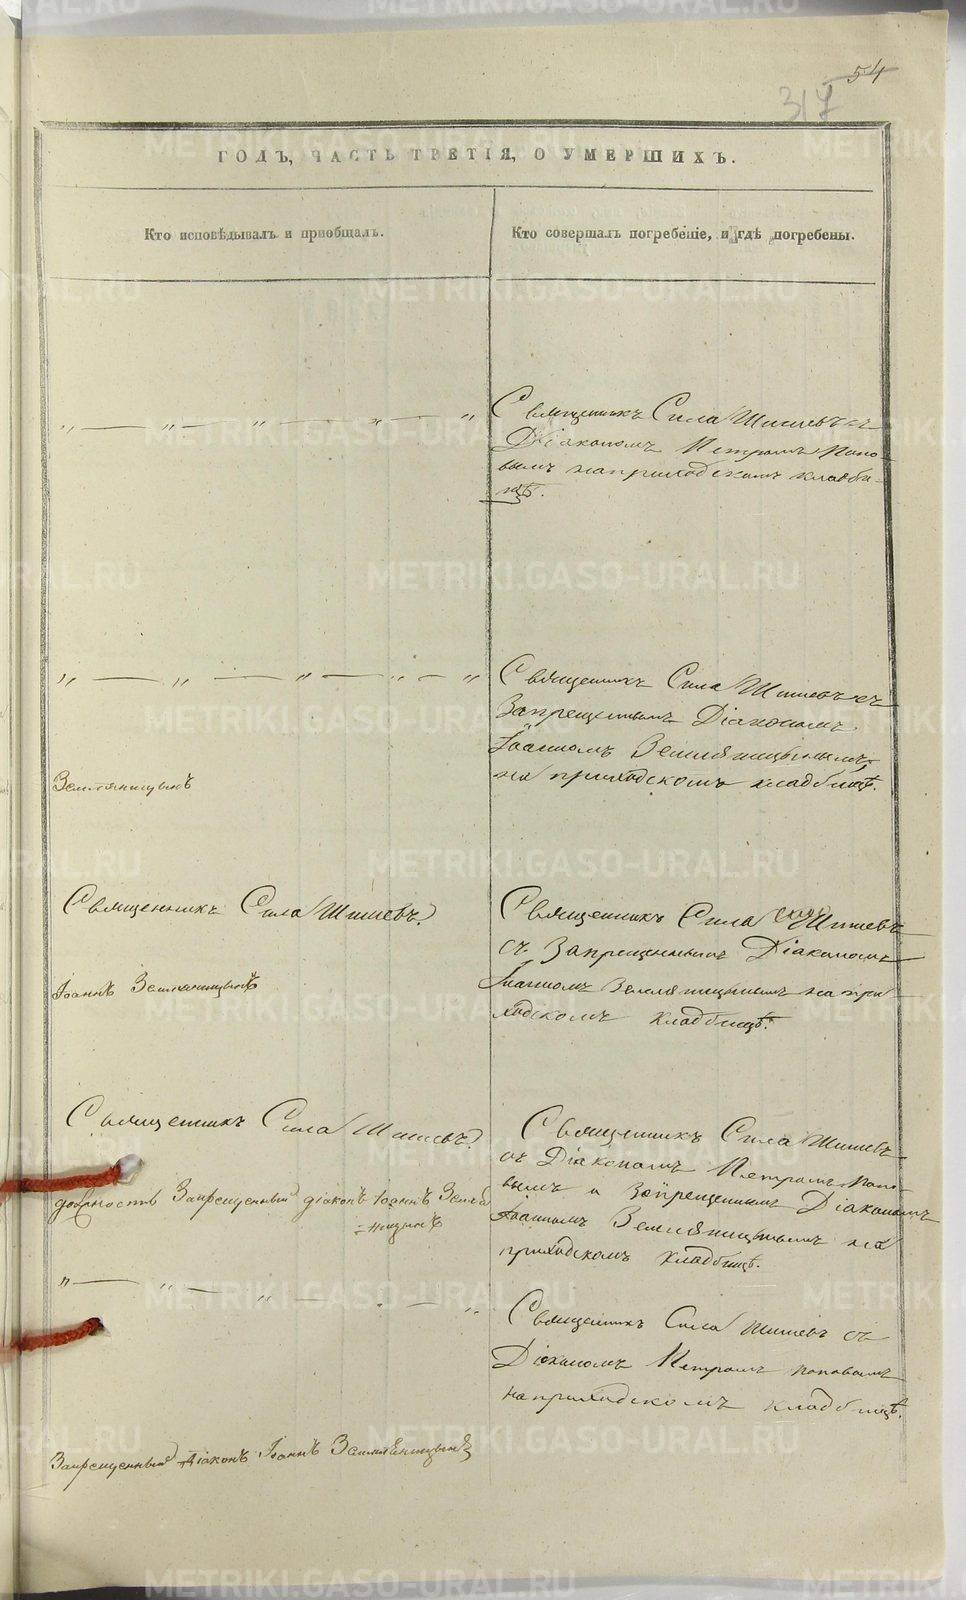 54
317
ГОДЪ, ЧАСТЬ ТРЕТІЯ, О УМЕРШИХЪ.
Кто исповѣдывалъ и пріобщалъ.
Кто совершалъ погребеніе, и гдѣ погребены.
„ — „ — „ — „ — „
Священникъ Сила Шишевъ съ
Діакономъ Петромъ Попо-
вымъ на приходскомъ кладби-
щѣ.
„ — „ — „ — „ — „
Священникъ Сила Шишевъ съ
Запрещеннымъ Діакономъ
Іоанномъ Земляницынымъ,
на приходскомъ кладбищѣ.
Земляницынъ
Священникъ Сила Шишевъ.
Священникъ Сила Шишевъ
съ Запрещеннымъ Діакономъ
Іоанномъ Земляницынымъ на при
ходскомъ кладбищѣ.
Іоаннъ Земляницынъ
Священникъ Сила Шишевъ.
Священникъ Сила Шишевъ
съ Діакономъ Петромъ Попо-
вымъ и Запрещеннымъ Діакономъ
Іоанномъ Земляницынымъ на
приходскомъ кладбищѣ.
должность Запрещенный діаконъ Іоаннъ Земля
=ницынъ
„ — „ — „ — „ — „
Священникъ Сила Шишевъ съ
Діакономъ Петромъ Поповымъ
на приходскомъ кладбищѣ.
Запрещенный Діаконъ Іоаннъ Земляницынъ
METRIKI.GASO-URAL.RU